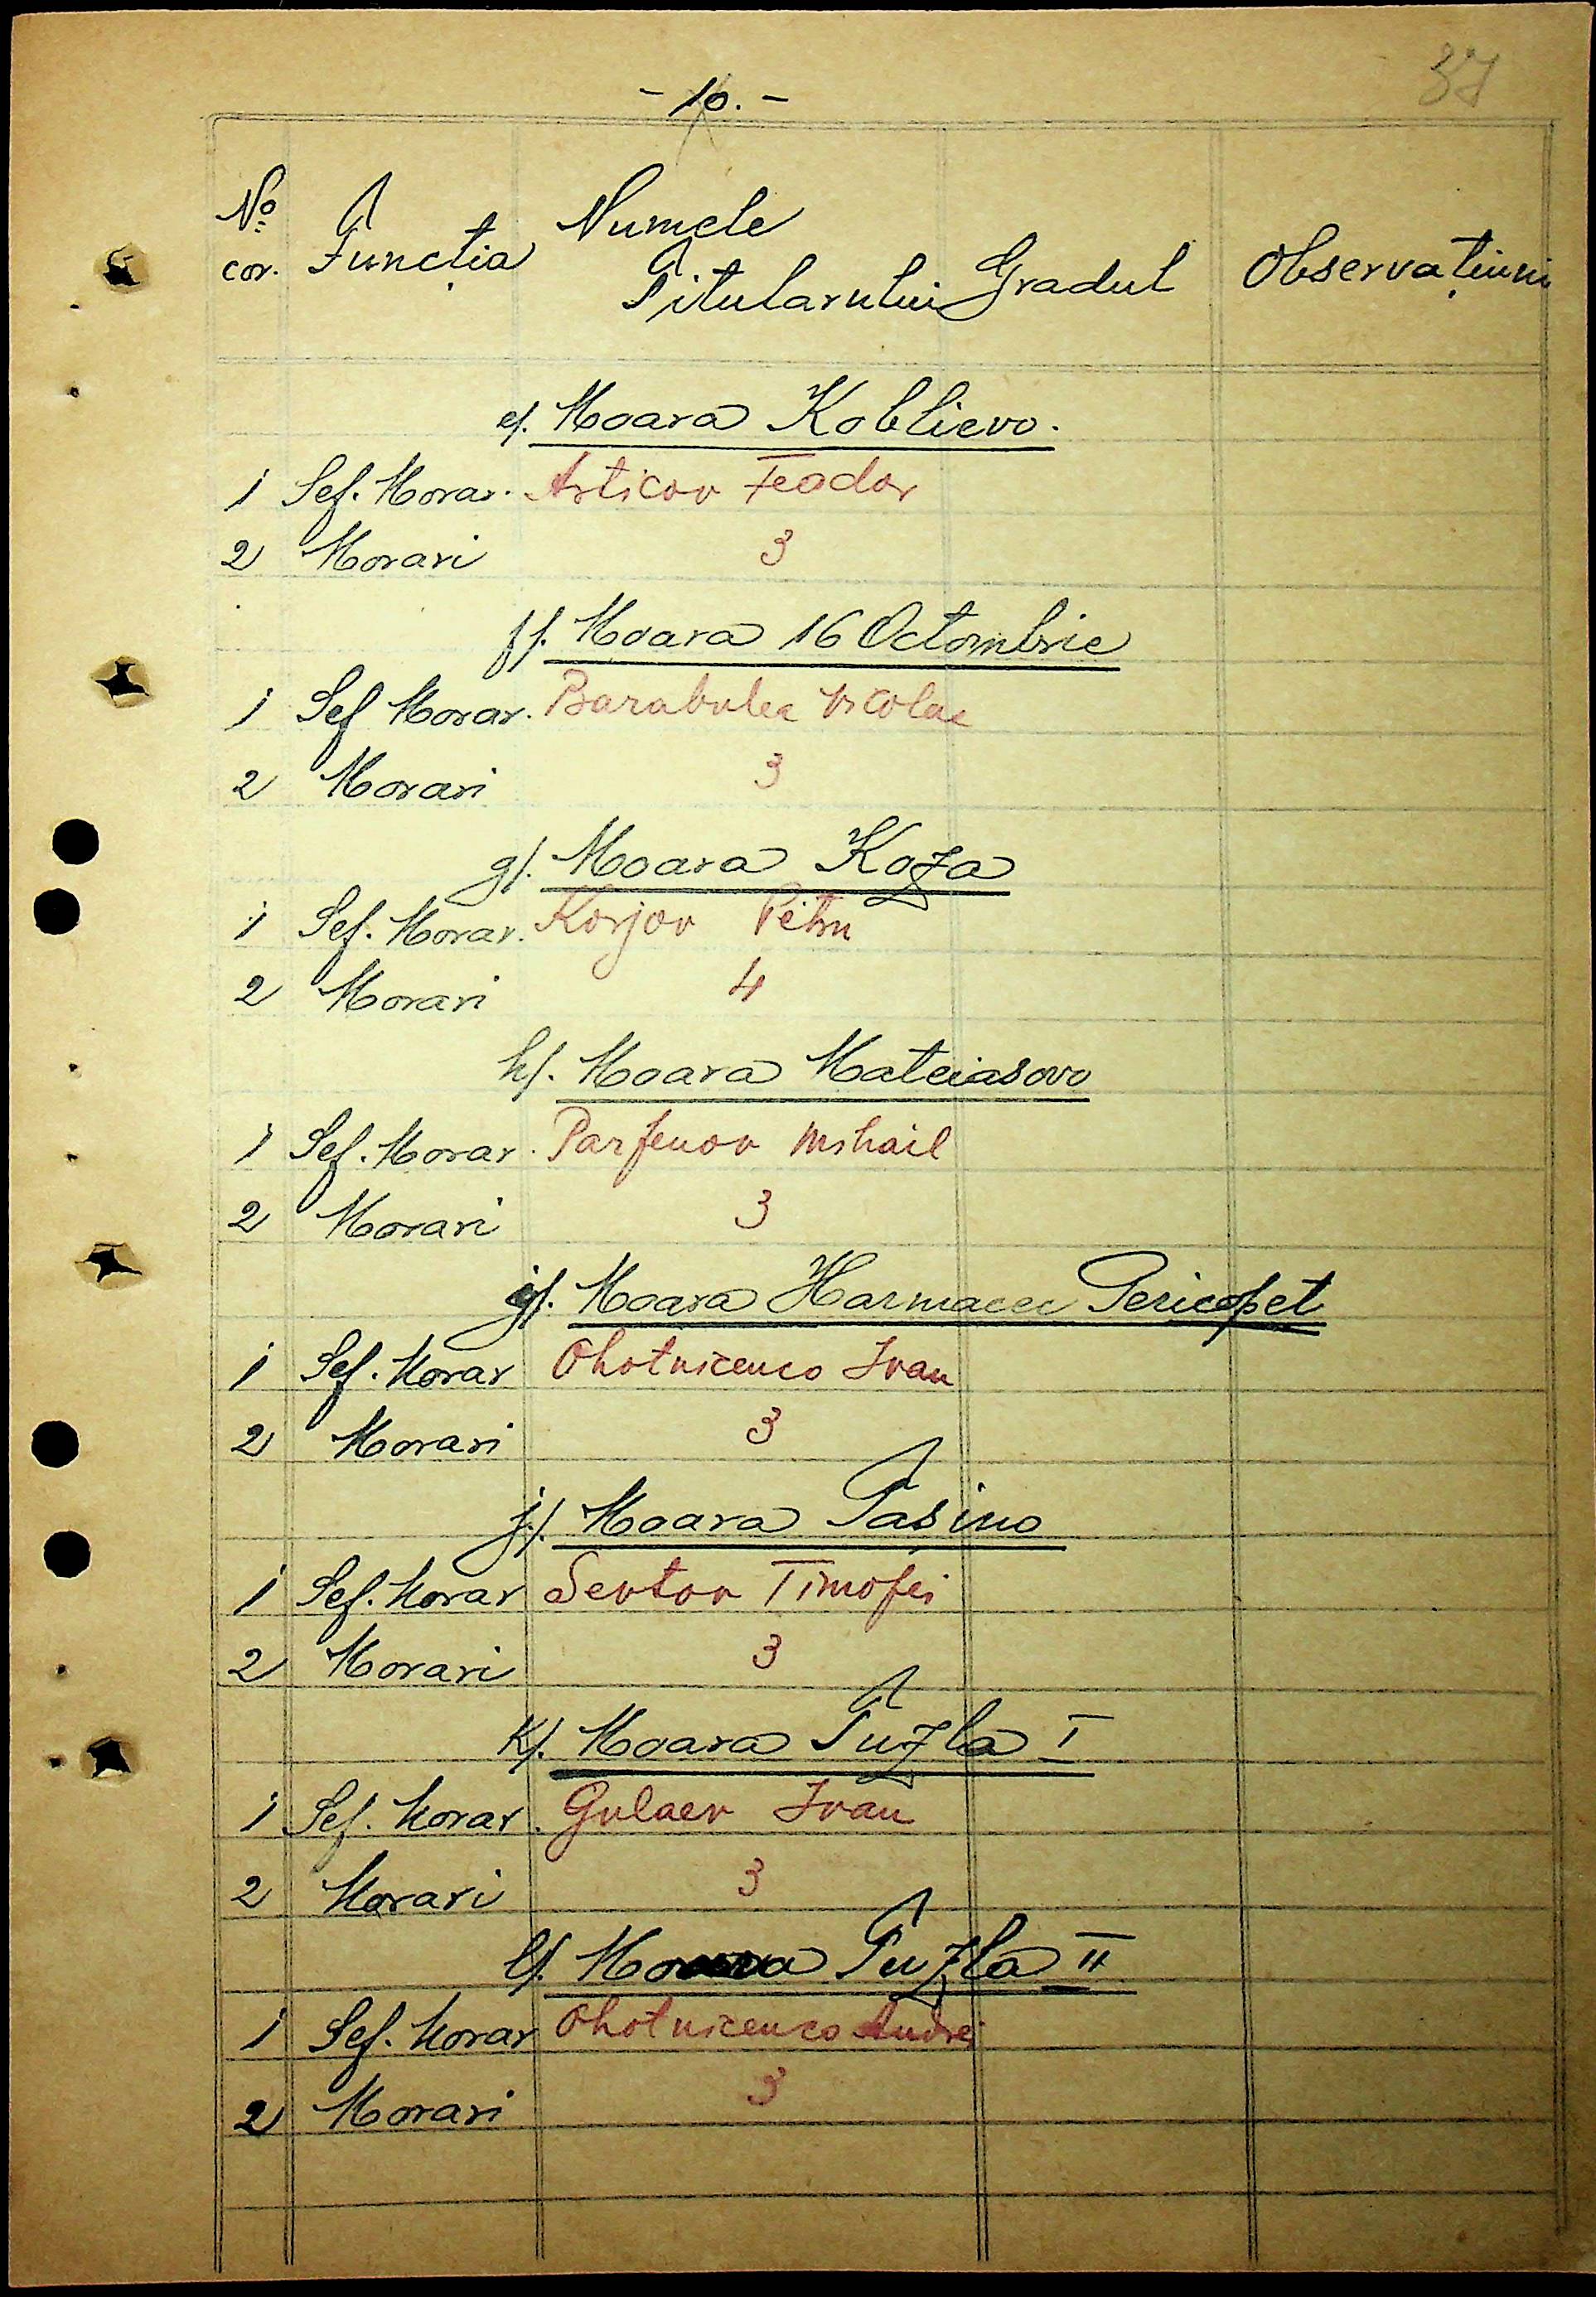 37
- 10. -
No cor. Funcția Numele Titularului Gradul Observațiuni
e/. Moara Koblievo.
1 Sef. Morar. Articov Feodor
2 Morari 3
f/. Moara 16 Octombrie
1 Sef Morar. Barabulea Nicolae
2 Morari 3
g/. Moara Koza
1 Sef. Morar. Korjov Petru
2 Morari 4
h/. Moara Mateiasovo
1 Sef. Morar. Parfenov Mihail
2 Morari 3
i/. Moara Harmacec
1 Sef. Morar Ohotnicenco Ivan
2 Morari 3
j/. Moara Tasino
1 Sef. Morar Sevtov Timofei
2 Morari 3
K/. Moara Tuzla I
1 Sef. Morar. Gulaev Ivan
2 Morari 3
l/. Moara Tuzla II
1 Sef. Morar Ohotnicenco Andrei
2 Morari 3